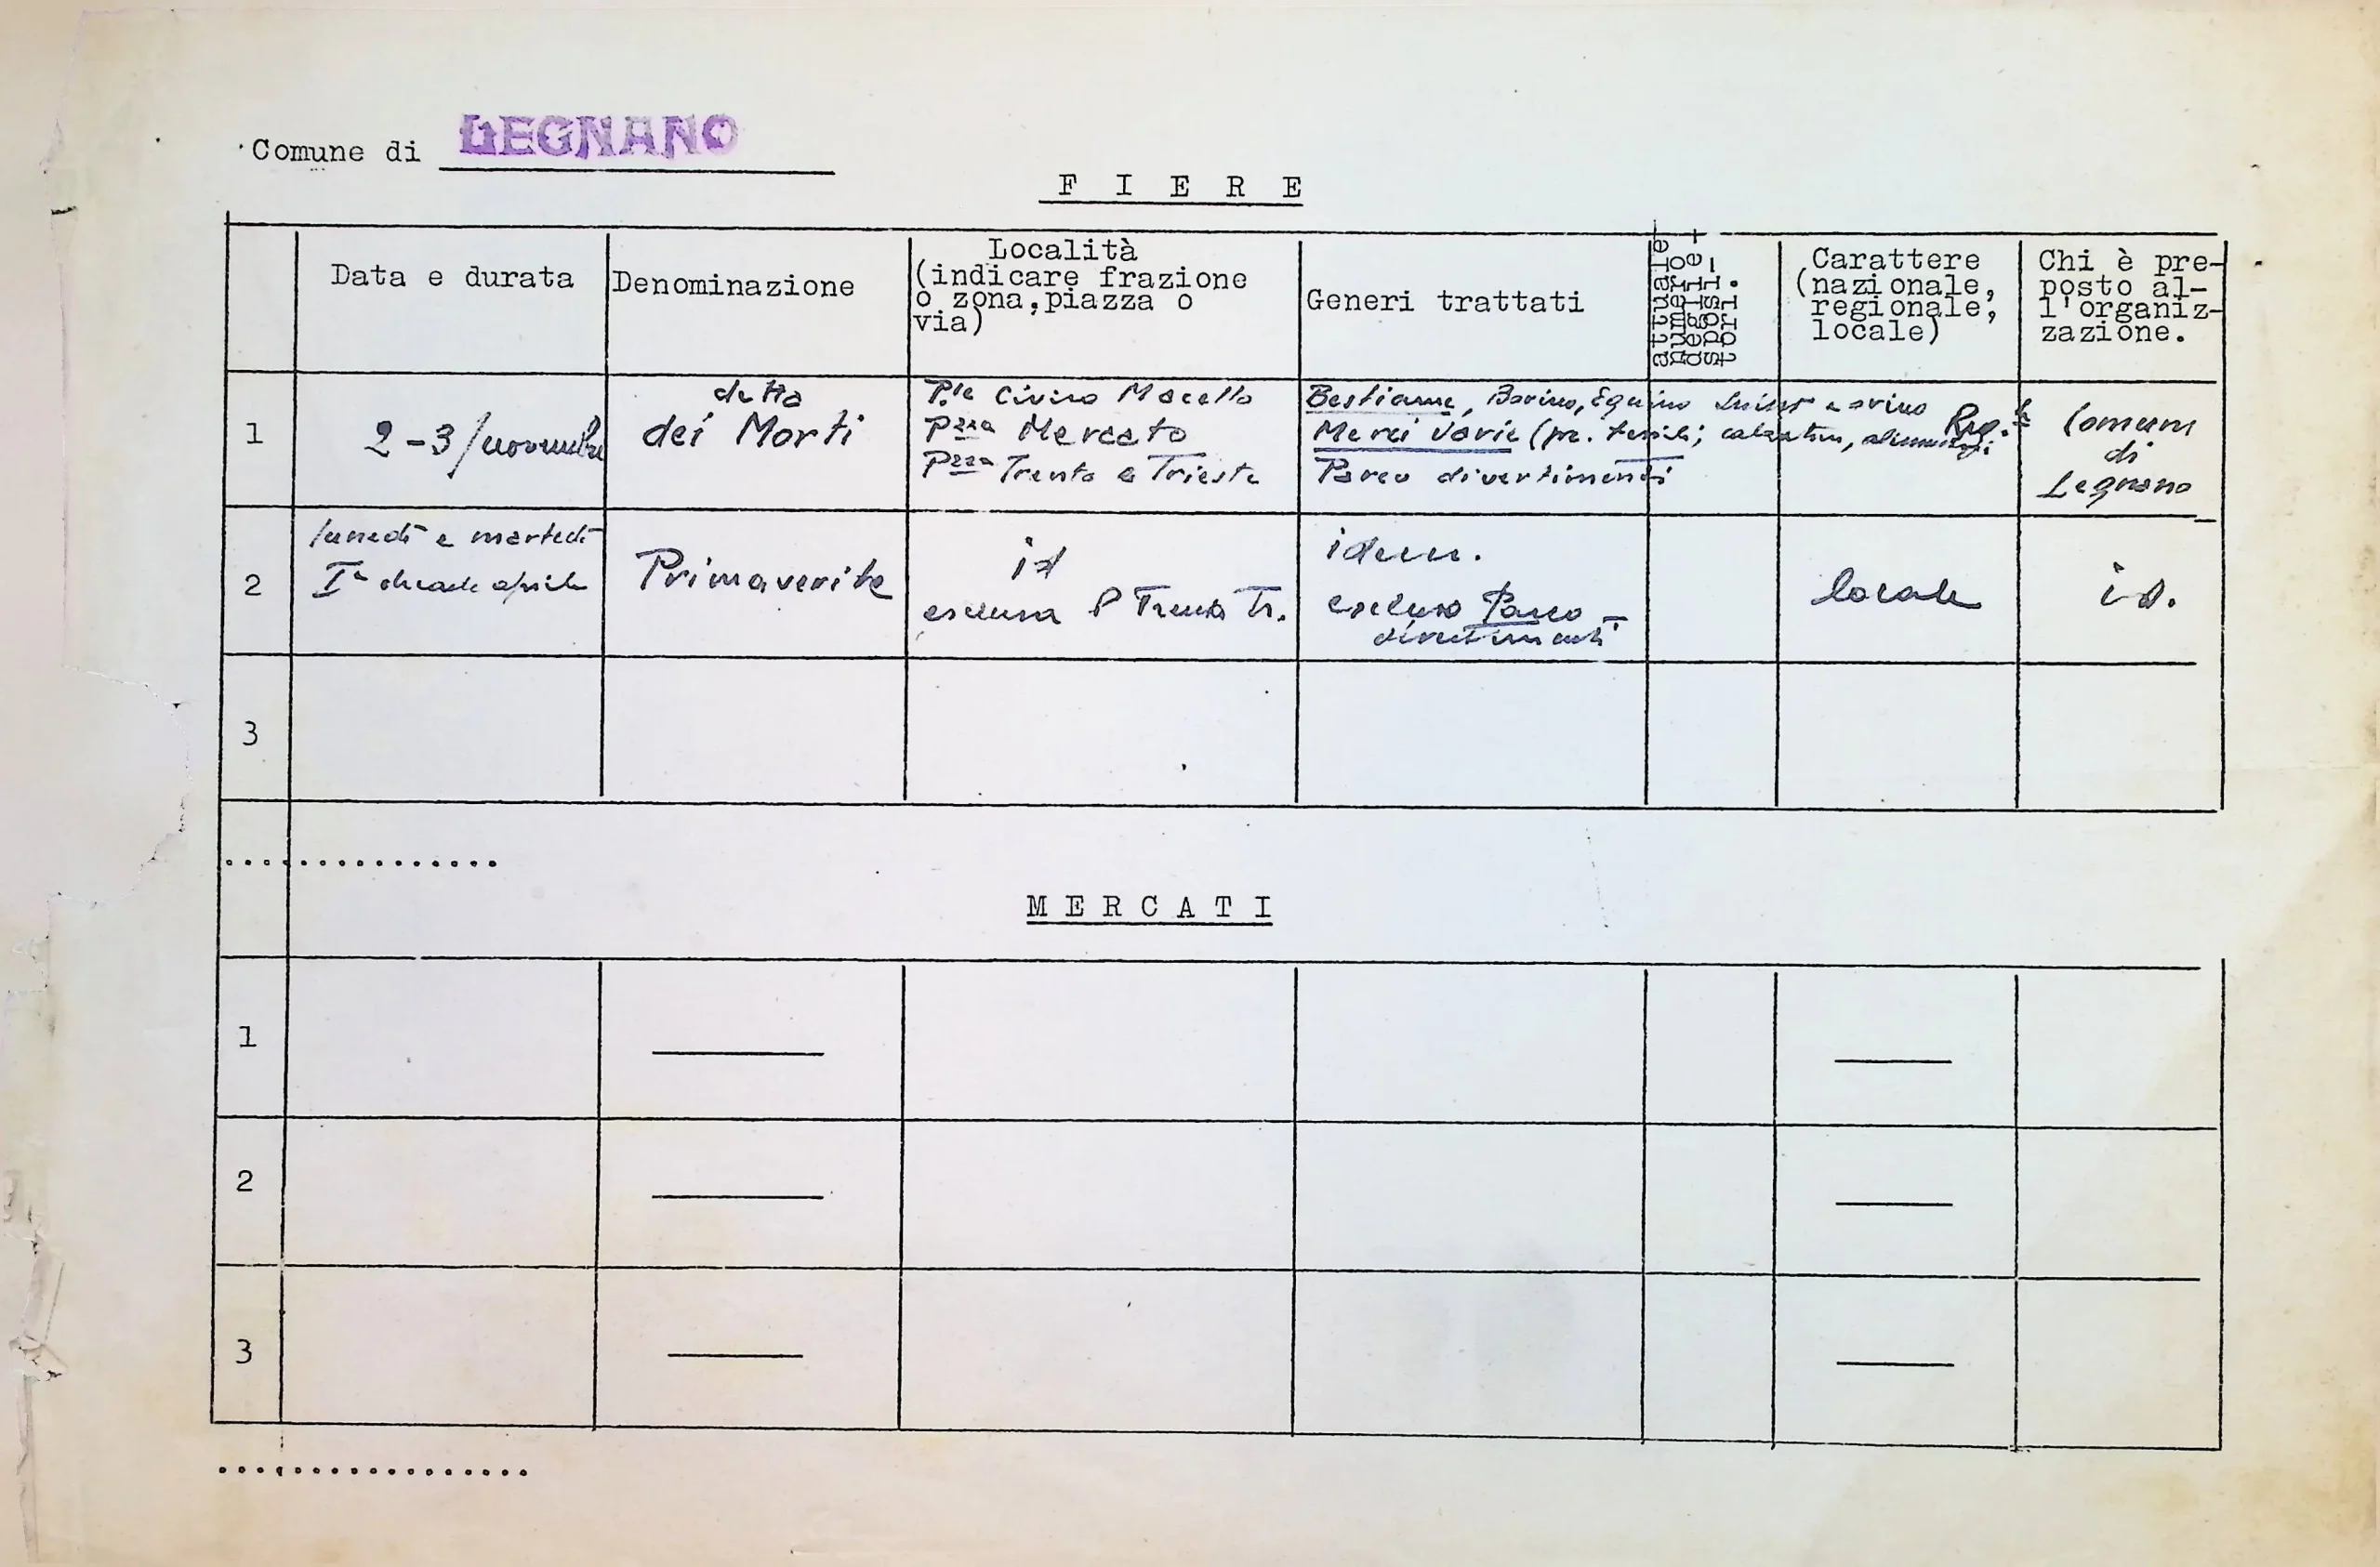 Comune di LEGNANO
F I E R E
Data e durata
Denominazione
Località
(indicare frazione
o zona, piazza o
via)
Generi trattati
attuale
numero
degli e-
sposi-
tori.
Carattere
(nazionale,
regionale,
locale)
Chi è pre-
posto al-
l'organiz-
zazione.
1
2-3/novembre
detta
dei Morti
P.le Civico Macello
Pzza Mercato
Pzza Trento e Trieste
Bestiame, Bovino, Equino Suino e ovino
Merci Varie (pr. tessili; calzature, alimentari
Parco divertimenti
Reg.le
Comune
di
Legnano
2
lunedì e martedì
Iª decade aprile
Primaverile
id
esclusa P Trento Tr.
idem.
escluso Parco
divertimenti
locale
id.
3
...............
M E R C A T I
1
2
3
.................